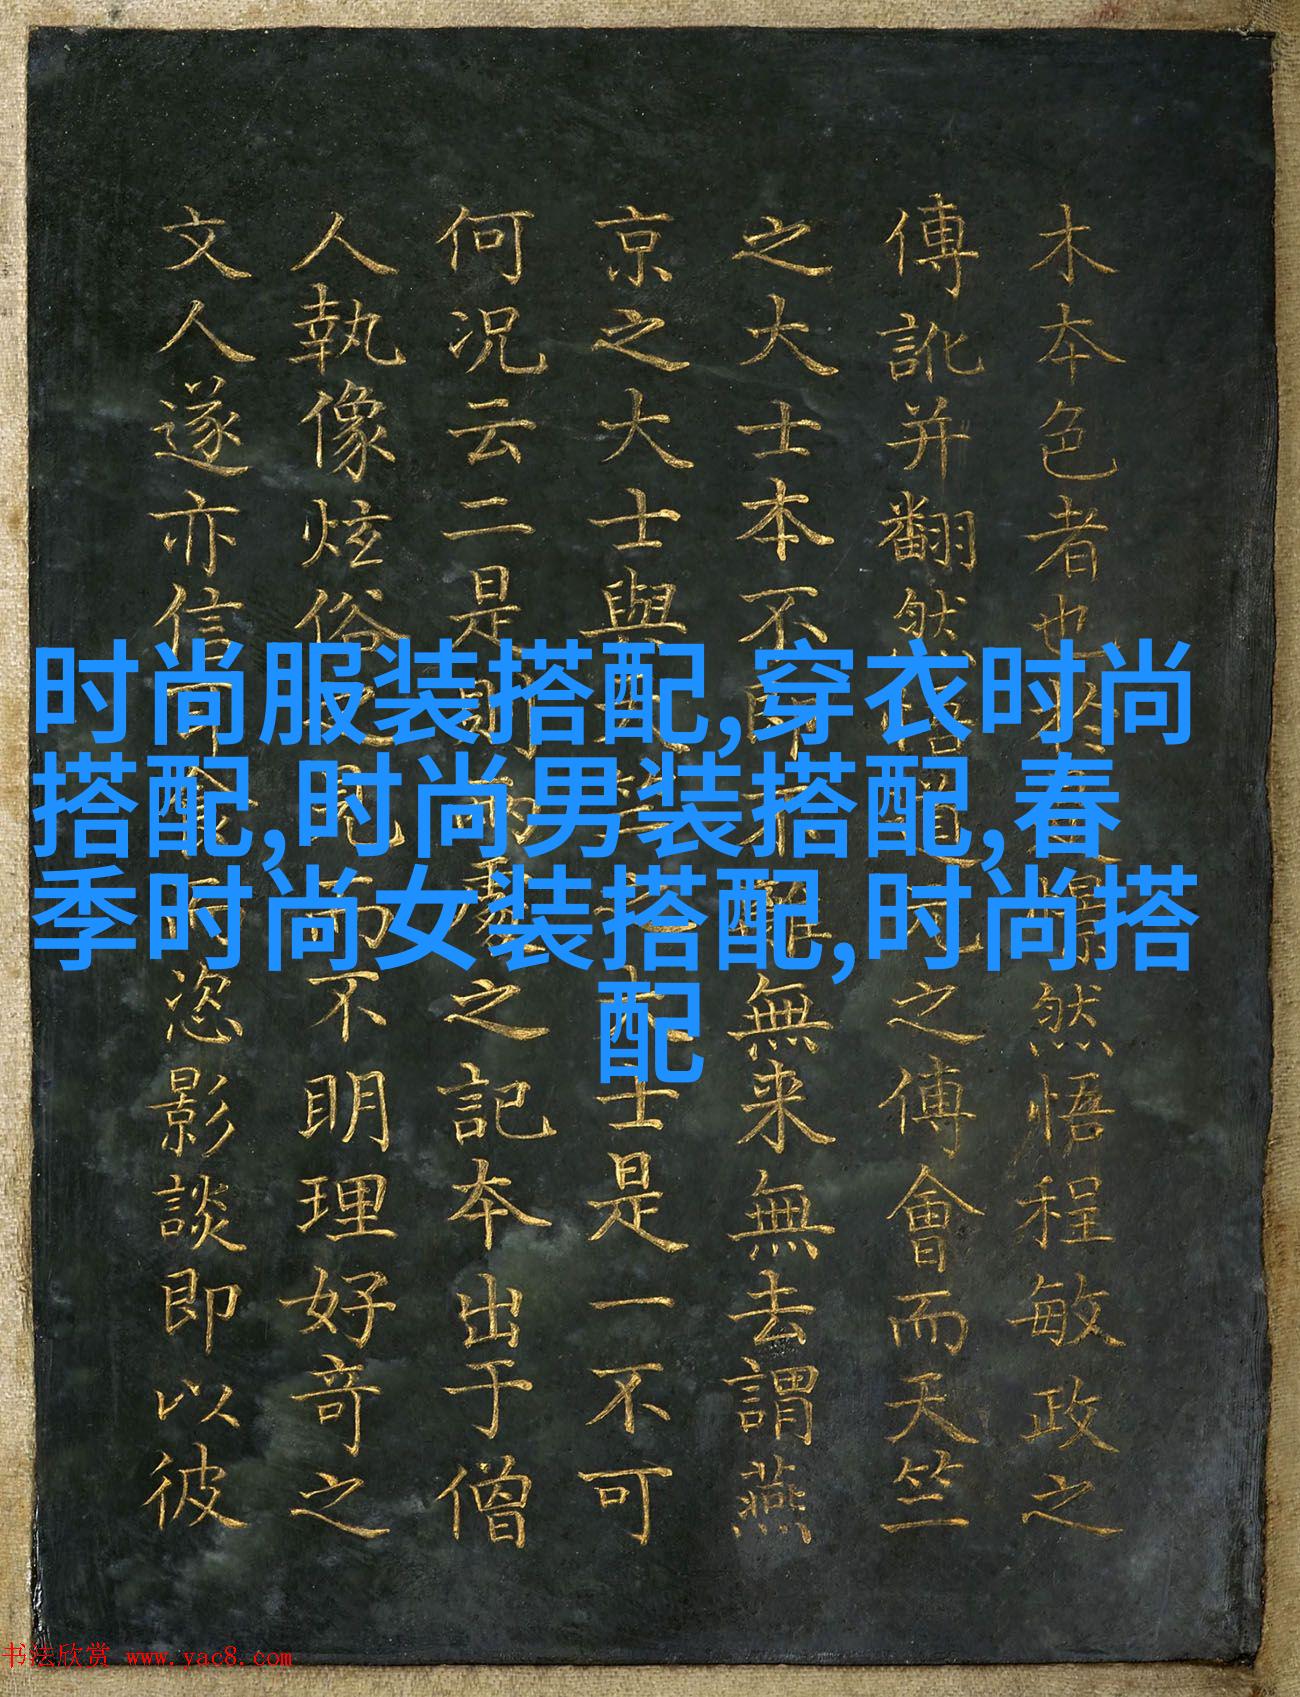 木夲色者也然悟程敏政之
傳訛并翻然之傅會而天竺
之大士本不無来無去謂燕
京之大士與士是一不可
何况云二是則之記夲出于僧
人執像炫俗而不明理好奇之
文人遂亦信恣影談即以彼
时尚服装搭配,穿衣时尚
搭配,时尚男装搭配,春
季时尚女装搭配,时尚搭
配
书法欣赏 www.yac8.com